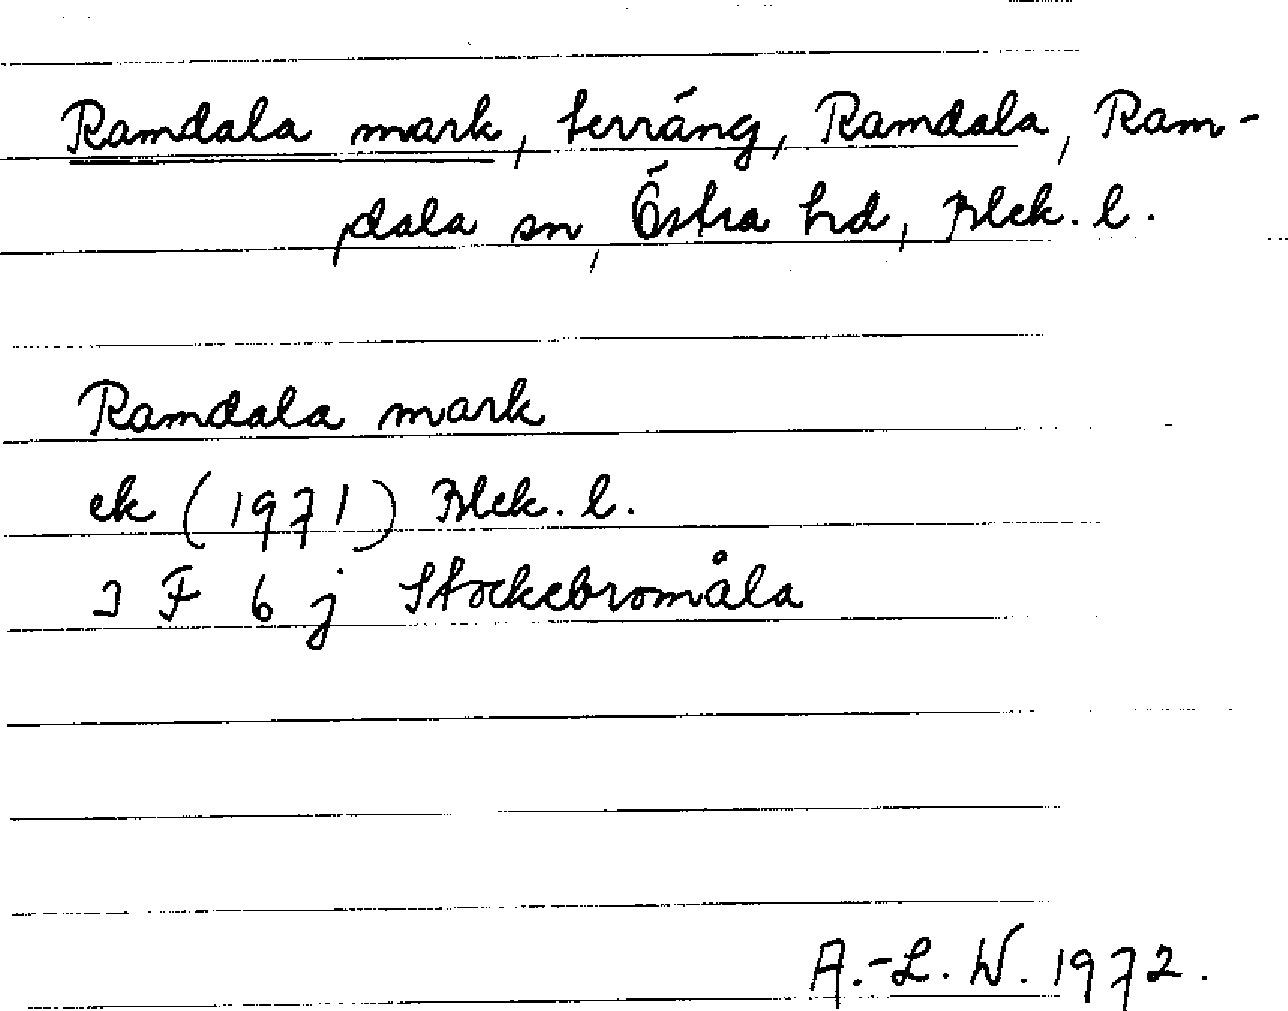 Ramdala mark, terräng, Ramdala, Ram-
dala sn, Östra hd, Blek. l.
Ramdala mark
ek (1971) Blek. l.
3 F 6 j Stockebromåla
A.-L. W. 1972.